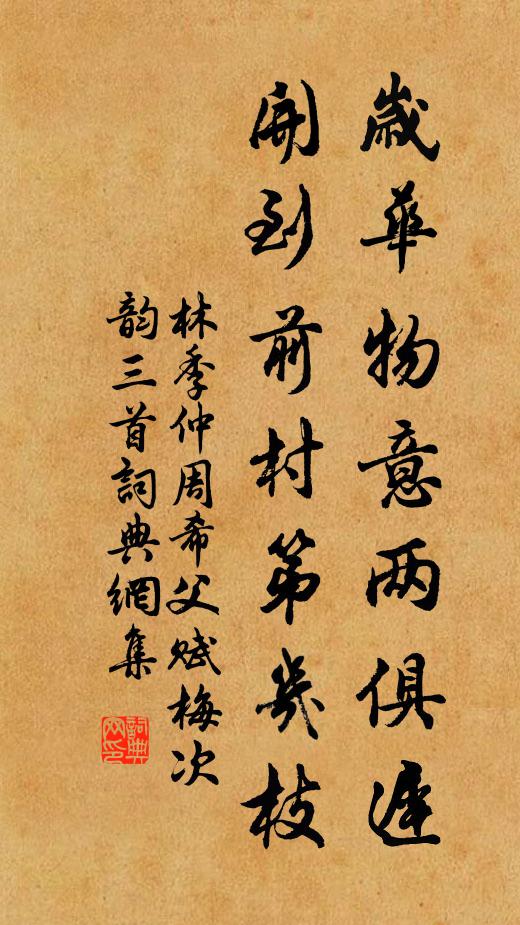 歲華物意两俱遲
開到前村第幾枝
林季仲周希父賦梅次
韵三首詞典網集
詞典网印